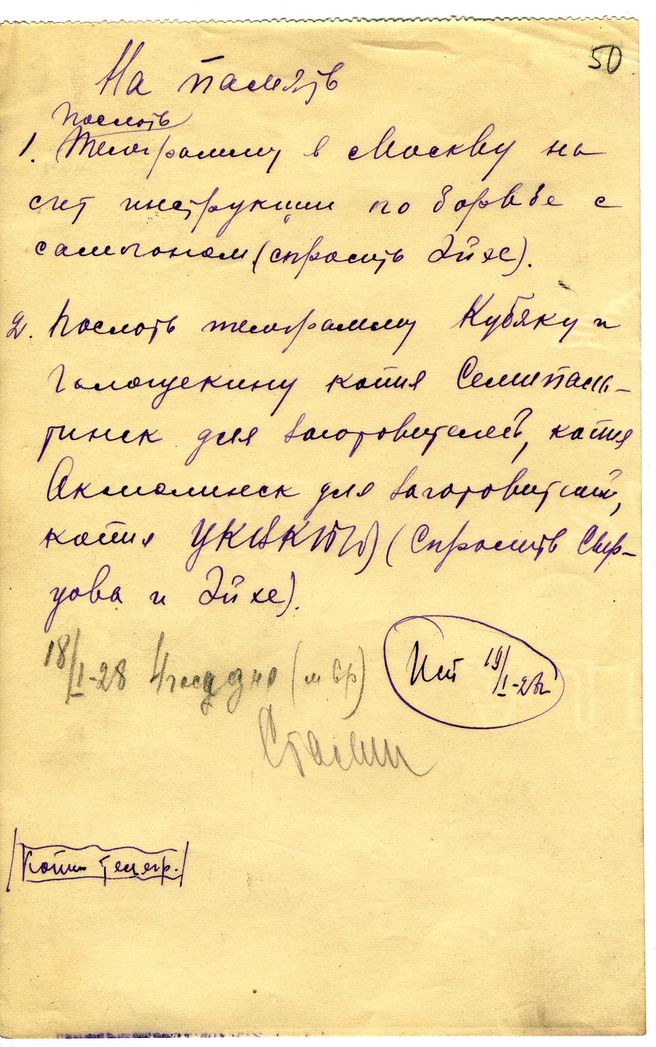 50
На память
Послать
1. Телеграмму в Москву на
счет инструкции по борьбе с
самогоном (спросить Эйхе).
2. Послать телеграмму Кубяку и
Голощекину копия Семипала-
тинск для заготовителей, копия
Акмолинск для заготовителей,
копия (Спросить Сыр-
цова и Эйхе).
18/I-28 4 часа дня (м вр)
19/I-28
Сталин
Копии телегр.